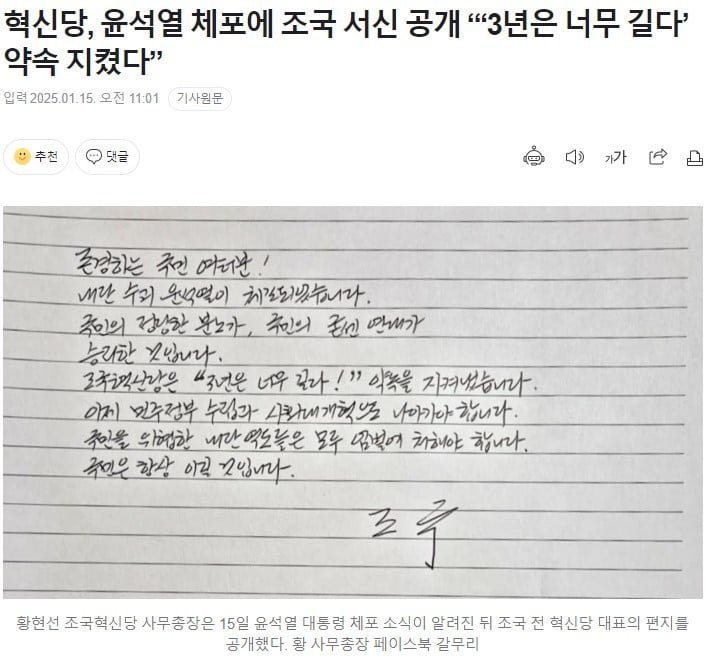 혁신당, 윤석열 체포에 조국 서신 공개 “‘3년은 너무 길다’
약속 지켰다”
입력 2025.01.15. 오전 11:01 기사원문
추천 댓글 가가
존경하는 국민 여러분!
내란 수괴 윤석열이 체포되었습니다.
국민의 정당한 분노가, 국민의 굳센 연대가
승리한 것입니다.
조국혁신당은 “3년은 너무 길다!” 약속을 지켜냈습니다.
이제 민주정부 수립과 사회대개혁으로 나아가야 합니다.
국민을 위협한 내란 역도들은 모두 엄벌에 처해야 합니다.
국민은 항상 이길 것입니다.
조국
황현선 조국혁신당 사무총장은 15일 윤석열 대통령 체포 소식이 알려진 뒤 조국 전 혁신당 대표의 편지를
공개했다. 황 사무총장 페이스북 갈무리